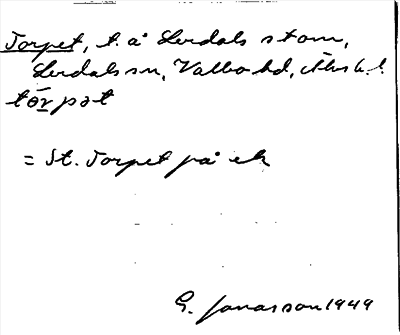 Torpet, t. å Lerdals stom,
Lerdals sn, Valbo hd, Älvsb. l.
tɷ̄rpət
= St. Torpet på ek
G. Jonasson 1949